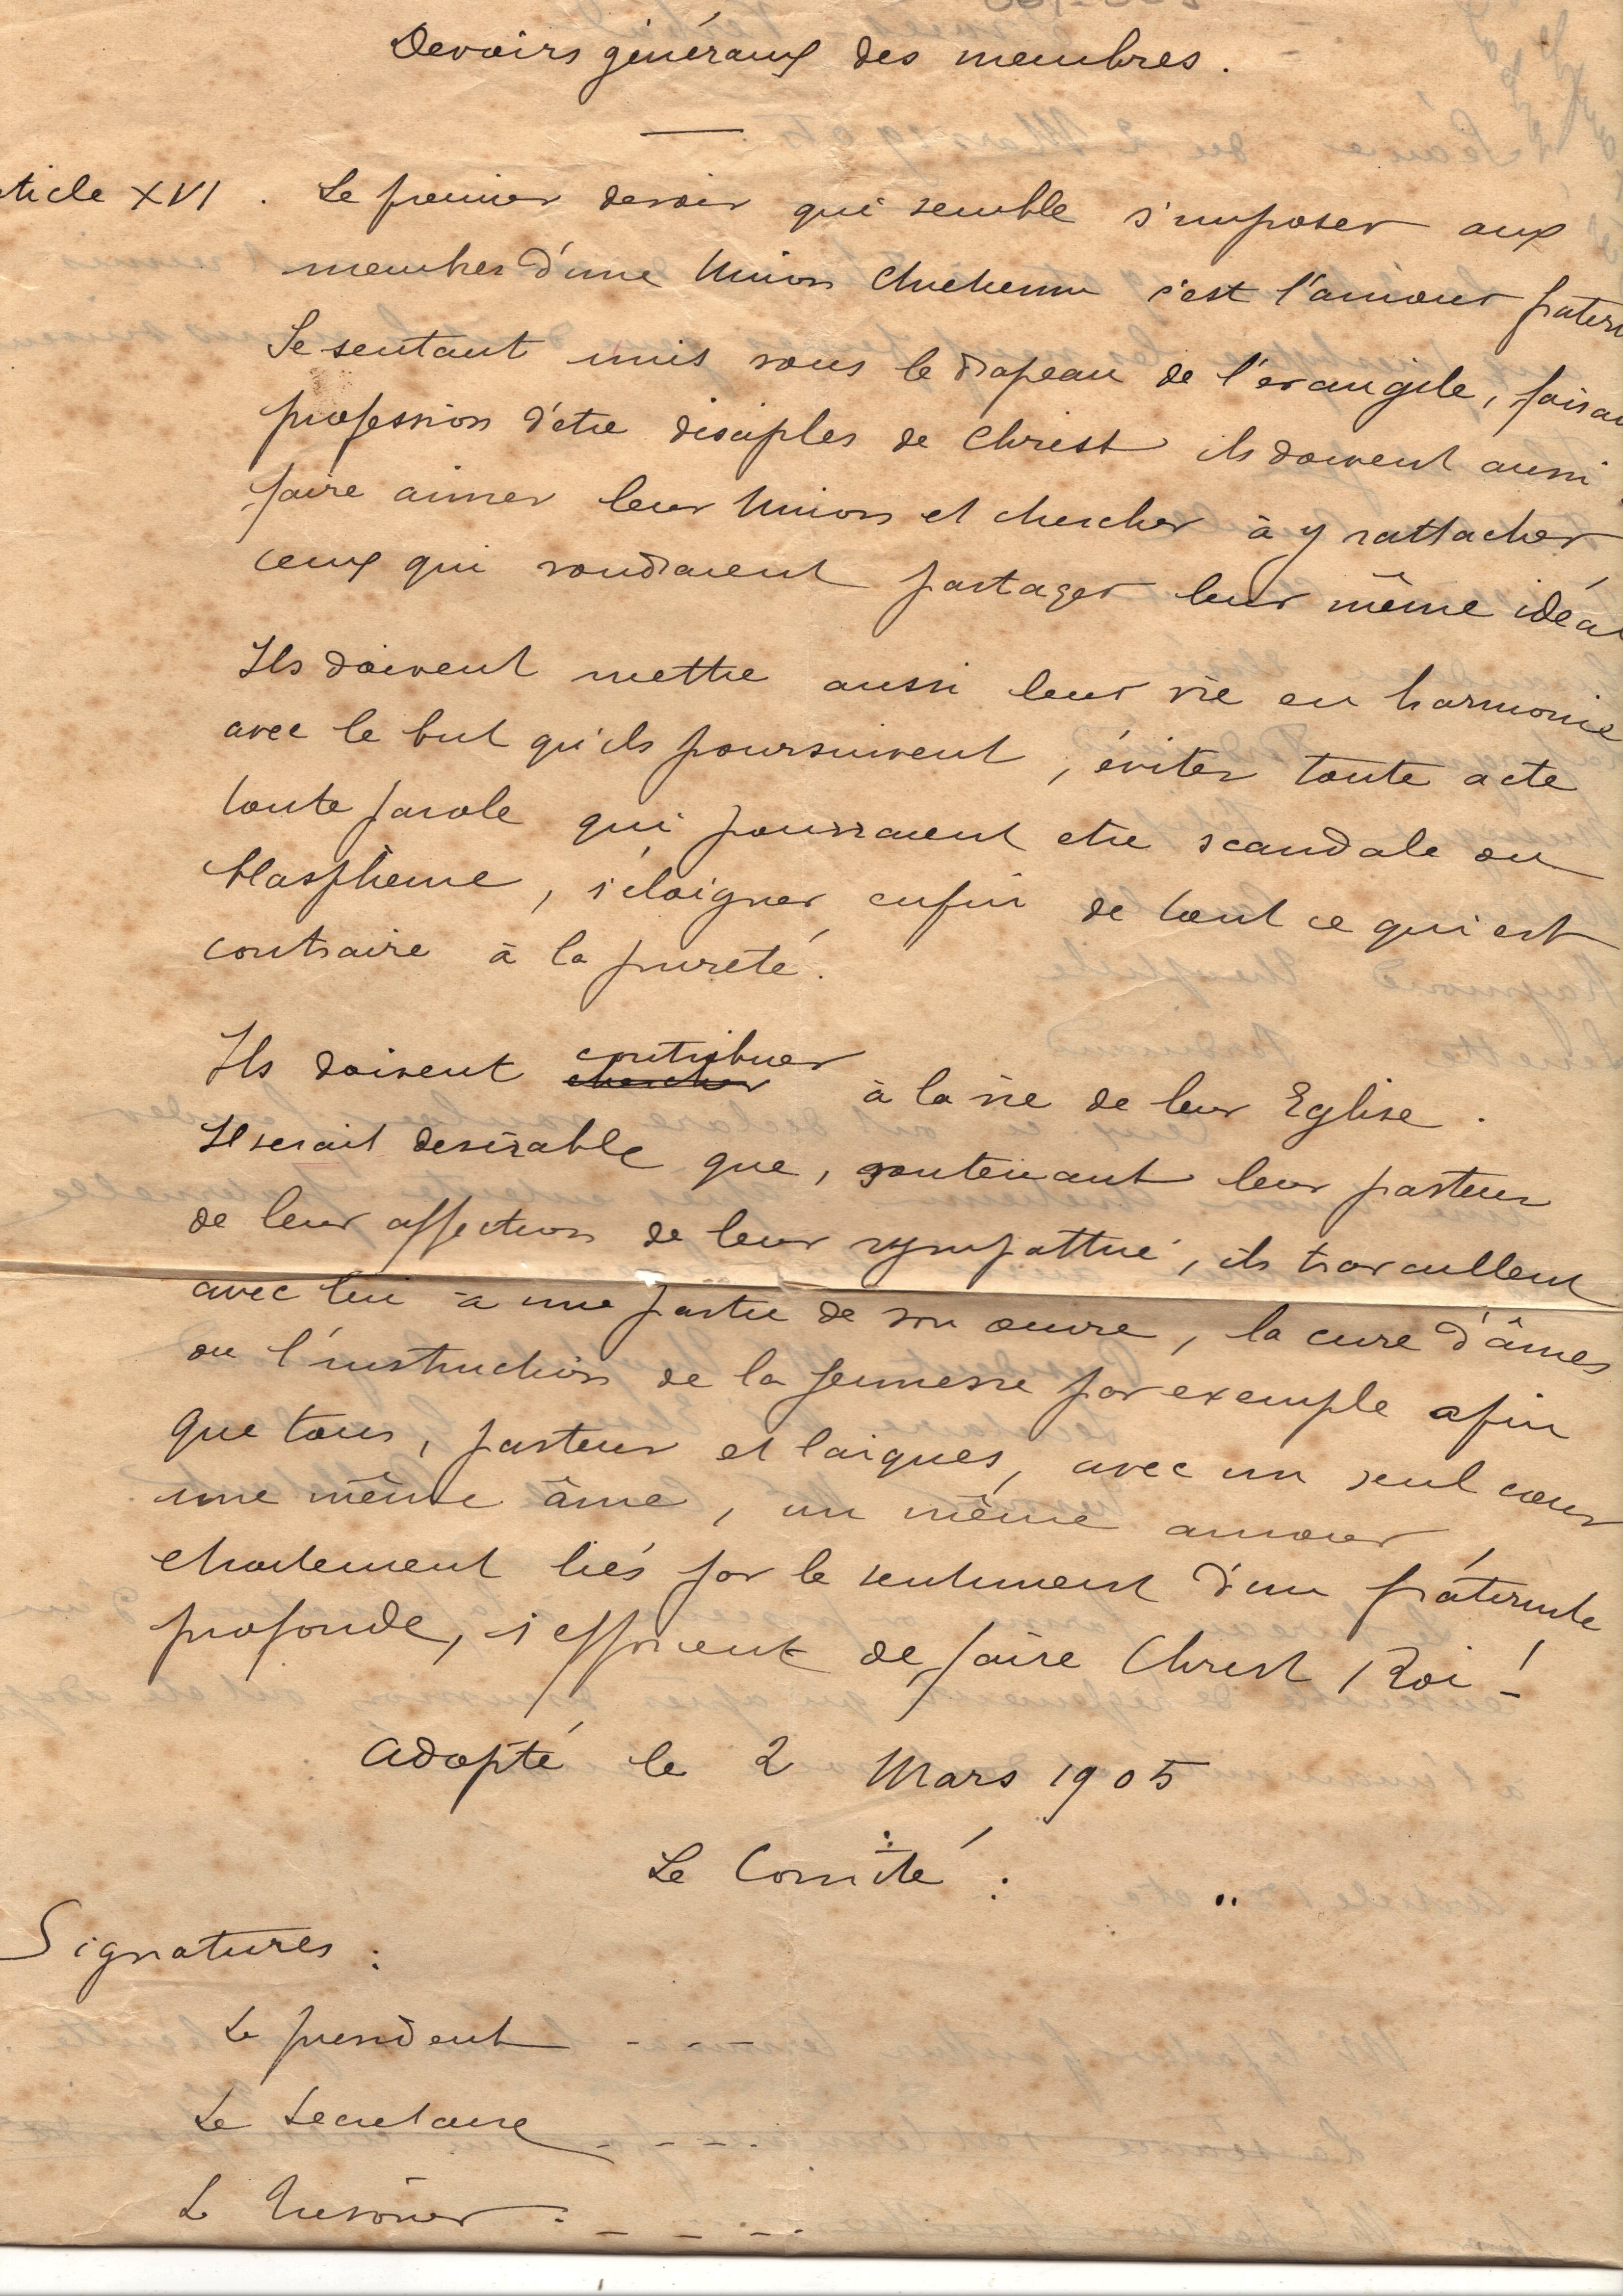 Devoirs généraux des membres.
ticle XVI. Le premier devoir qui semble s'imposer aux
membres d'une Union Chrétienne c'est l'amour fatern
Se sentant unis sous le drapeau de l'evangile, faisa
profession d'etre disciples de Christ ils doivent aussi
faire aimer leur Union et chercher à y rattacher
ceux qui voudraient partager leur même idéa
Ils doivent mettre aussi leur vie en harmonie
avec le but qu'ils poursuivent, éviter toute acte
toute parole qui pourraient etre scandale ou
blasphème, s'éloigner enfin de tout ce qui est
contraire à la pureté.
contribuer
Ils doivent chercher à la vie de leur Eglise.
Il serait desirable que, soutenant leur pasteur
de leur affection de leur sympathie, ils travaillent
avec lui à une partie de son œuvre, la cure d'âmes
ou l'instruction de la jeunesse par exemple afin
que tous, pasteur et laiques, avec un seul cœur
une même âme, un même amour,
etroitement liés par le sentiment d'une fraternité
profonde, s'efforcent de faire Christ Roi!
Adopté le 2 Mars 1905
Le Comité :
Signatures :
Le president ----
Le Secretaire ----
Le Tresorier : ----